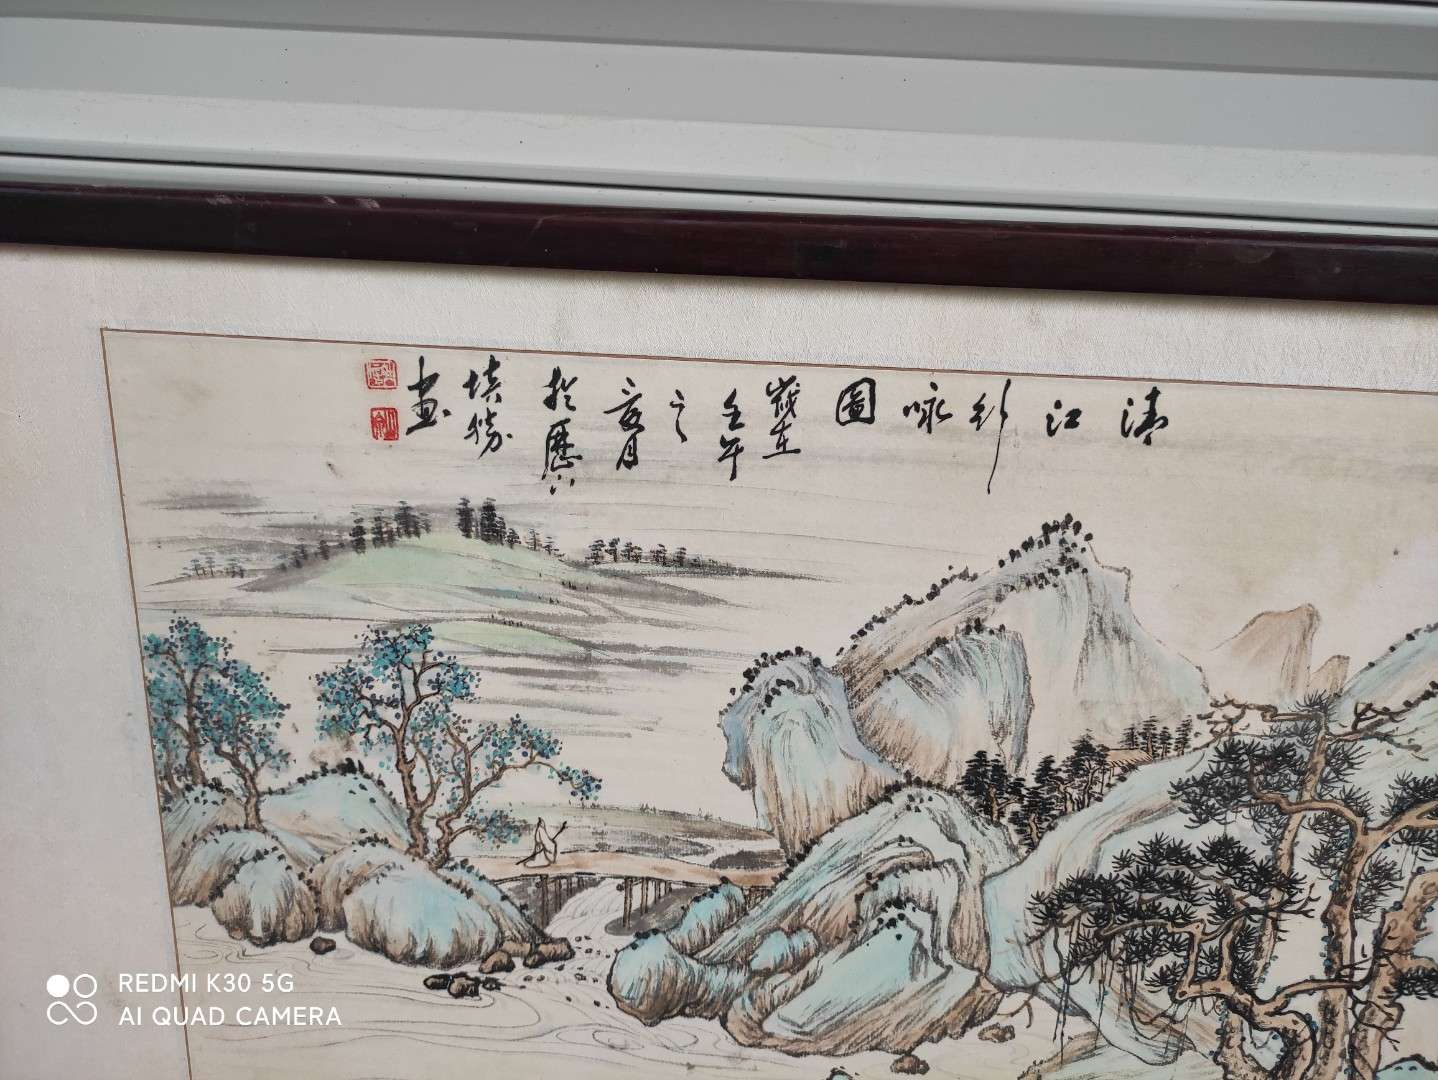 清江行咏
圖
歲在
壬午
之
夏月
於歷下
培勝
画
REDMI K30 5G
AI QUAD CAMERA